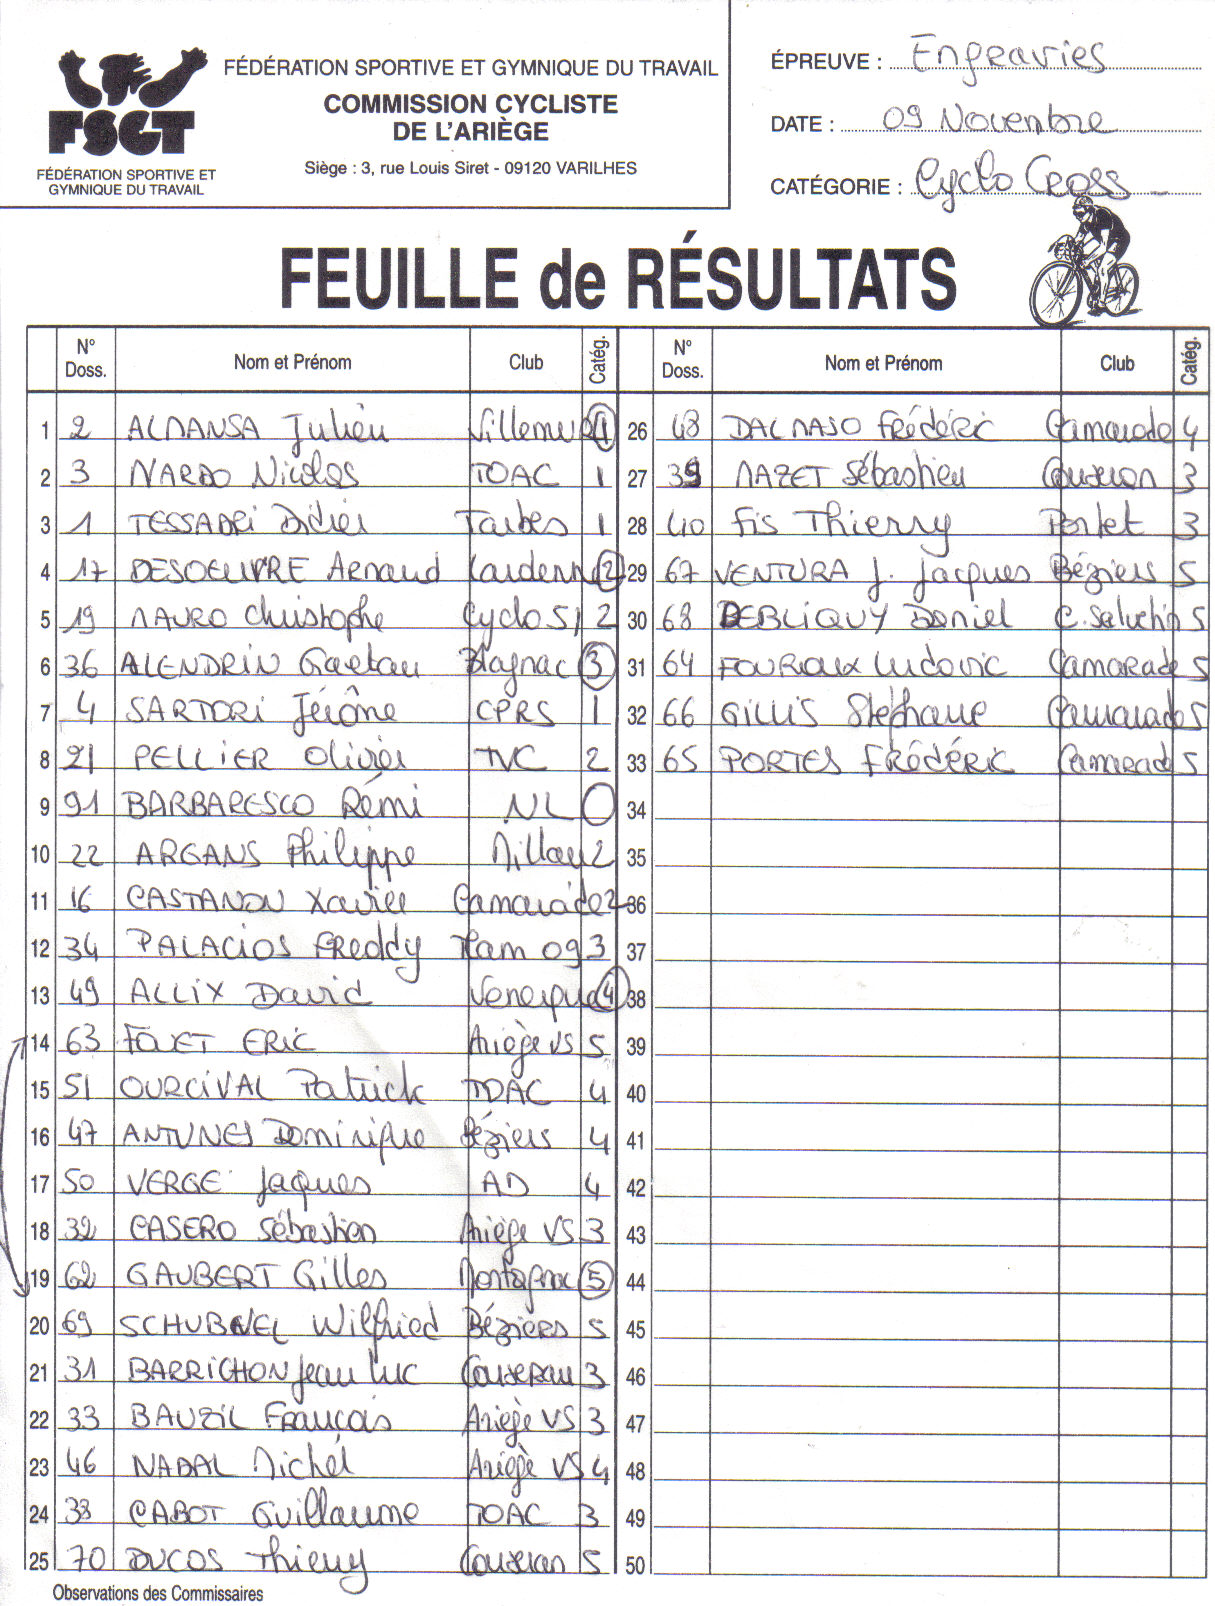 FÉDÉRATION SPORTIVE ET GYMNIQUE DU TRAVAIL
COMMISSION CYCLISTE
DE L'ARIÈGE
Siège : 3, rue Louis Siret - 09120 VARILHES
FSGT
FÉDÉRATION SPORTIVE ET
GYMNIQUE DU TRAVAIL
ÉPREUVE : Engravies
DATE : 09 Novembre
CATÉGORIE : Cyclo Cross
FEUILLE de RÉSULTATS
N° Doss. Nom et Prénom Club Catég.
1 2 ALMANSA Julien Villemur 1
2 3 NARDO Nicolas TOAC 1
3 1 TESSARI Didier Tarbes 1
4 17 DESOEUVRE Arnaud 2
5 19 MAURO Christophe Cyclo 51 2
6 36 ALENDRIN Gaetan Blagnac 3
7 4 SARTORI Jérôme CPRS 1
8 21 PELLIER Olivier TVC 2
9 91 BARBARESCO Rémi NL
10 22 ARGANS Philippe Millau 2
11 16 CASTANON Xavier Camarade 2
12 34 PALACIOS Freddy Team 09 3
13 49 ALLIX David Venerque 4
14 63 FOUET ERIC Ariège VS 5
15 51 OURCIVAL Patrick TOAC 4
16 47 ANTUNES Dominique Béziers 4
17 50 VERGÉ Jacques AD 4
18 32 CASERO Sébastien Ariège VS 3
19 62 GAUBERT Gilles Montagnac 5
20 69 SCHUBNEL Wilfried Béziers 5
21 31 BARRICHON Jean Luc Couseran 3
22 33 BAUZIL François Ariège VS 3
23 46 NADAL Michel Ariège VS 4
24 38 CABOT Guillaume TOAC 3
25 70 DUCOS Thierry Couseran 5
N° Doss. Nom et Prénom Club Catég.
26 48 DALMASO Frédéric Camarade 4
27 39 MAZET Sébastien Couseran 3
28 40 Fis Thierry Portet 3
29 67 VENTURA J. Jacques Béziers 5
30 68 DEBLIQUY Daniel 5
31 64 FOURIAUX Ludovic Camarade 5
32 66 GILLIS Stephane Camarade 5
33 65 PORTES Frédéric Camarade 5
34
35
36
37
38
39
40
41
42
43
44
45
46
47
48
49
50
Observations des Commissaires